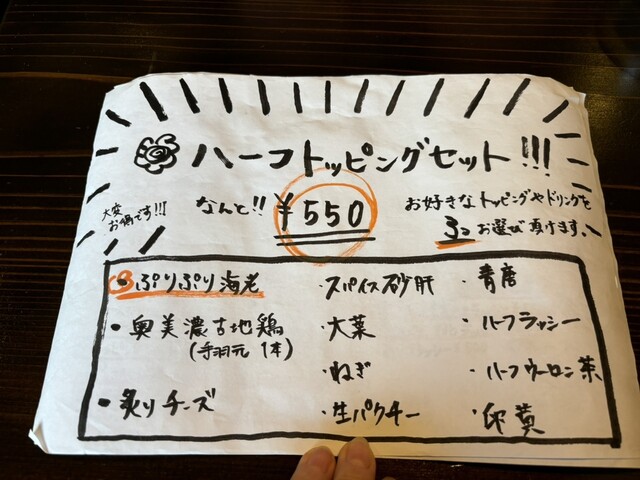 ハーフトッピングセット!!!
大変
お得です!!!
なんと!! ¥550
お好きなトッピングやドリンクを
3つお選び頂けます。
・ぷりぷり海老
・奥美濃古地鶏
(手羽元 1本)
・炙りチーズ
・スパイス砂肝
・大葉
・ねぎ
・生パクチー
・青唐
・ハーフラッシー
・ハーフウーロン茶
・卵黄